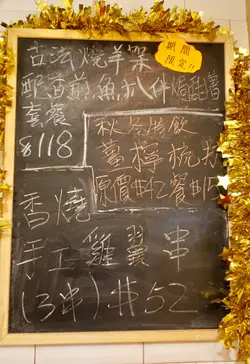 期間
限定!!
古法燒羊架
配香煎魚扒伴焗釀薯
套餐
$118
秋冬特飲
薯檸梳打
原價$42餐$15
香燒
手工雞翼串
(3串)$52